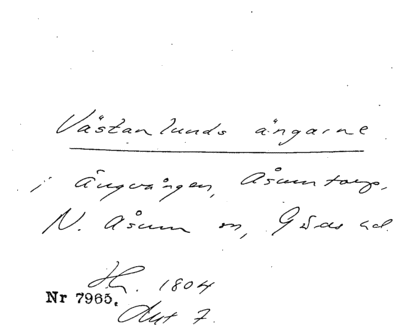 Västanlunds ängarne
i Ängvången, Åsumtorp,
N. Åsum sn, Gärds hd.
Hr. 1804
Nr 7965.
Akt 7.